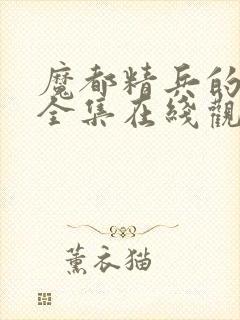 魔都精兵的
全集在綫觀
薰衣猫